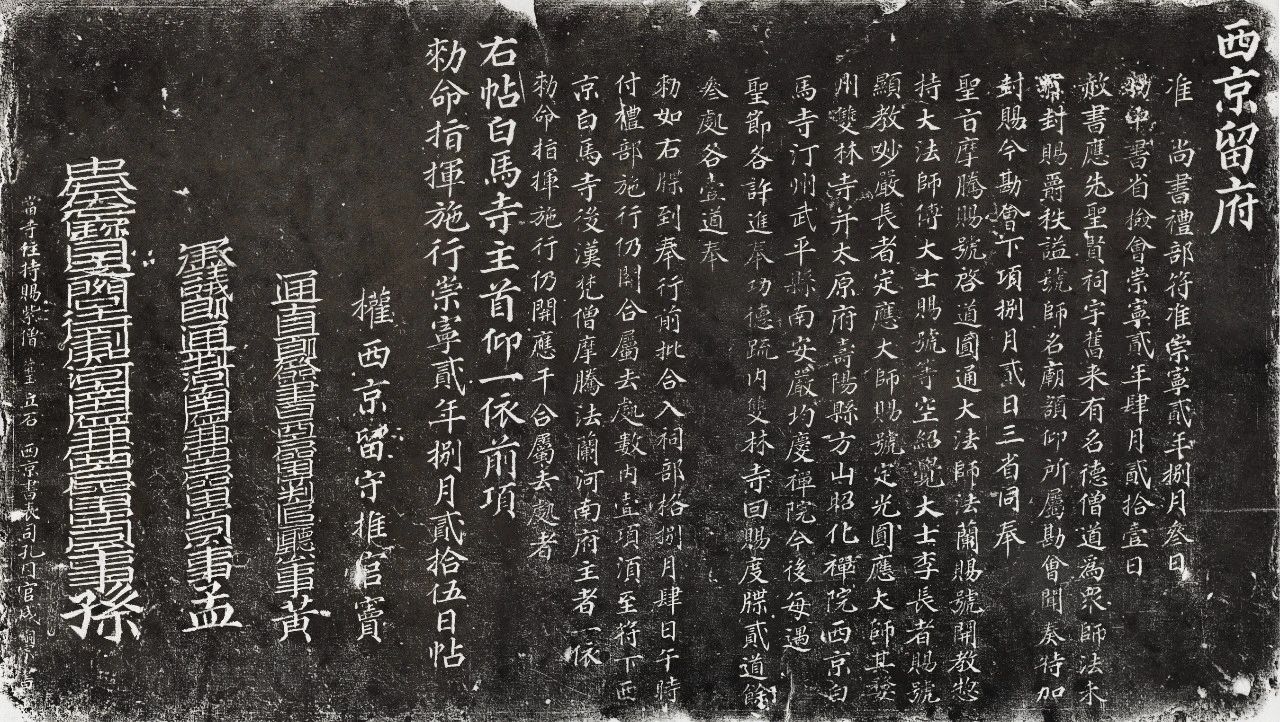 西京留府
准尚書禮部符准崇寧貳年捌月叄日
勑中書省撿會崇寧貳年肆月貳拾壹日
赦書應先聖賢祠宇舊来有名德僧道為衆師法未
經封賜爵秩謚號師名廟額仰所屬勘會聞奏特加
封賜今勘會下項捌月貳日三省同奉
聖旨摩騰賜號啓道圓通大法師法蘭賜號開教揔
持大法師傅大士賜號等空紹覺大士李長者賜號
顯教妙嚴長者定應大師賜號定光圓應大師其婺
州雙林寺并太原府壽陽縣方山昭化禪院西京白
馬寺汀州武平縣南安嚴均慶禪院今後每遇
聖節各許進奉功德疏内雙林寺回賜度牒貳道餘
叄處各壹道奉
勑如右牒到奉行前批合入祠部格捌月肆日午時
付禮部施行仍關合屬去處數内壹項湏至符下西
京白馬寺後漢梵僧摩騰法蘭河南府主者一依
勑命指揮施行仍關應干合屬去處者
右帖白馬寺主首仰一依前項
勑命指揮施行崇寧貳年捌月貳拾伍日帖
權西京留守推官竇
通直郎簽書西京留守判官廳公事黃
承議郎通判河南府兼西京留守司事孟
孫
當寺住持賜紫僧 立石 西京書表司孔目官